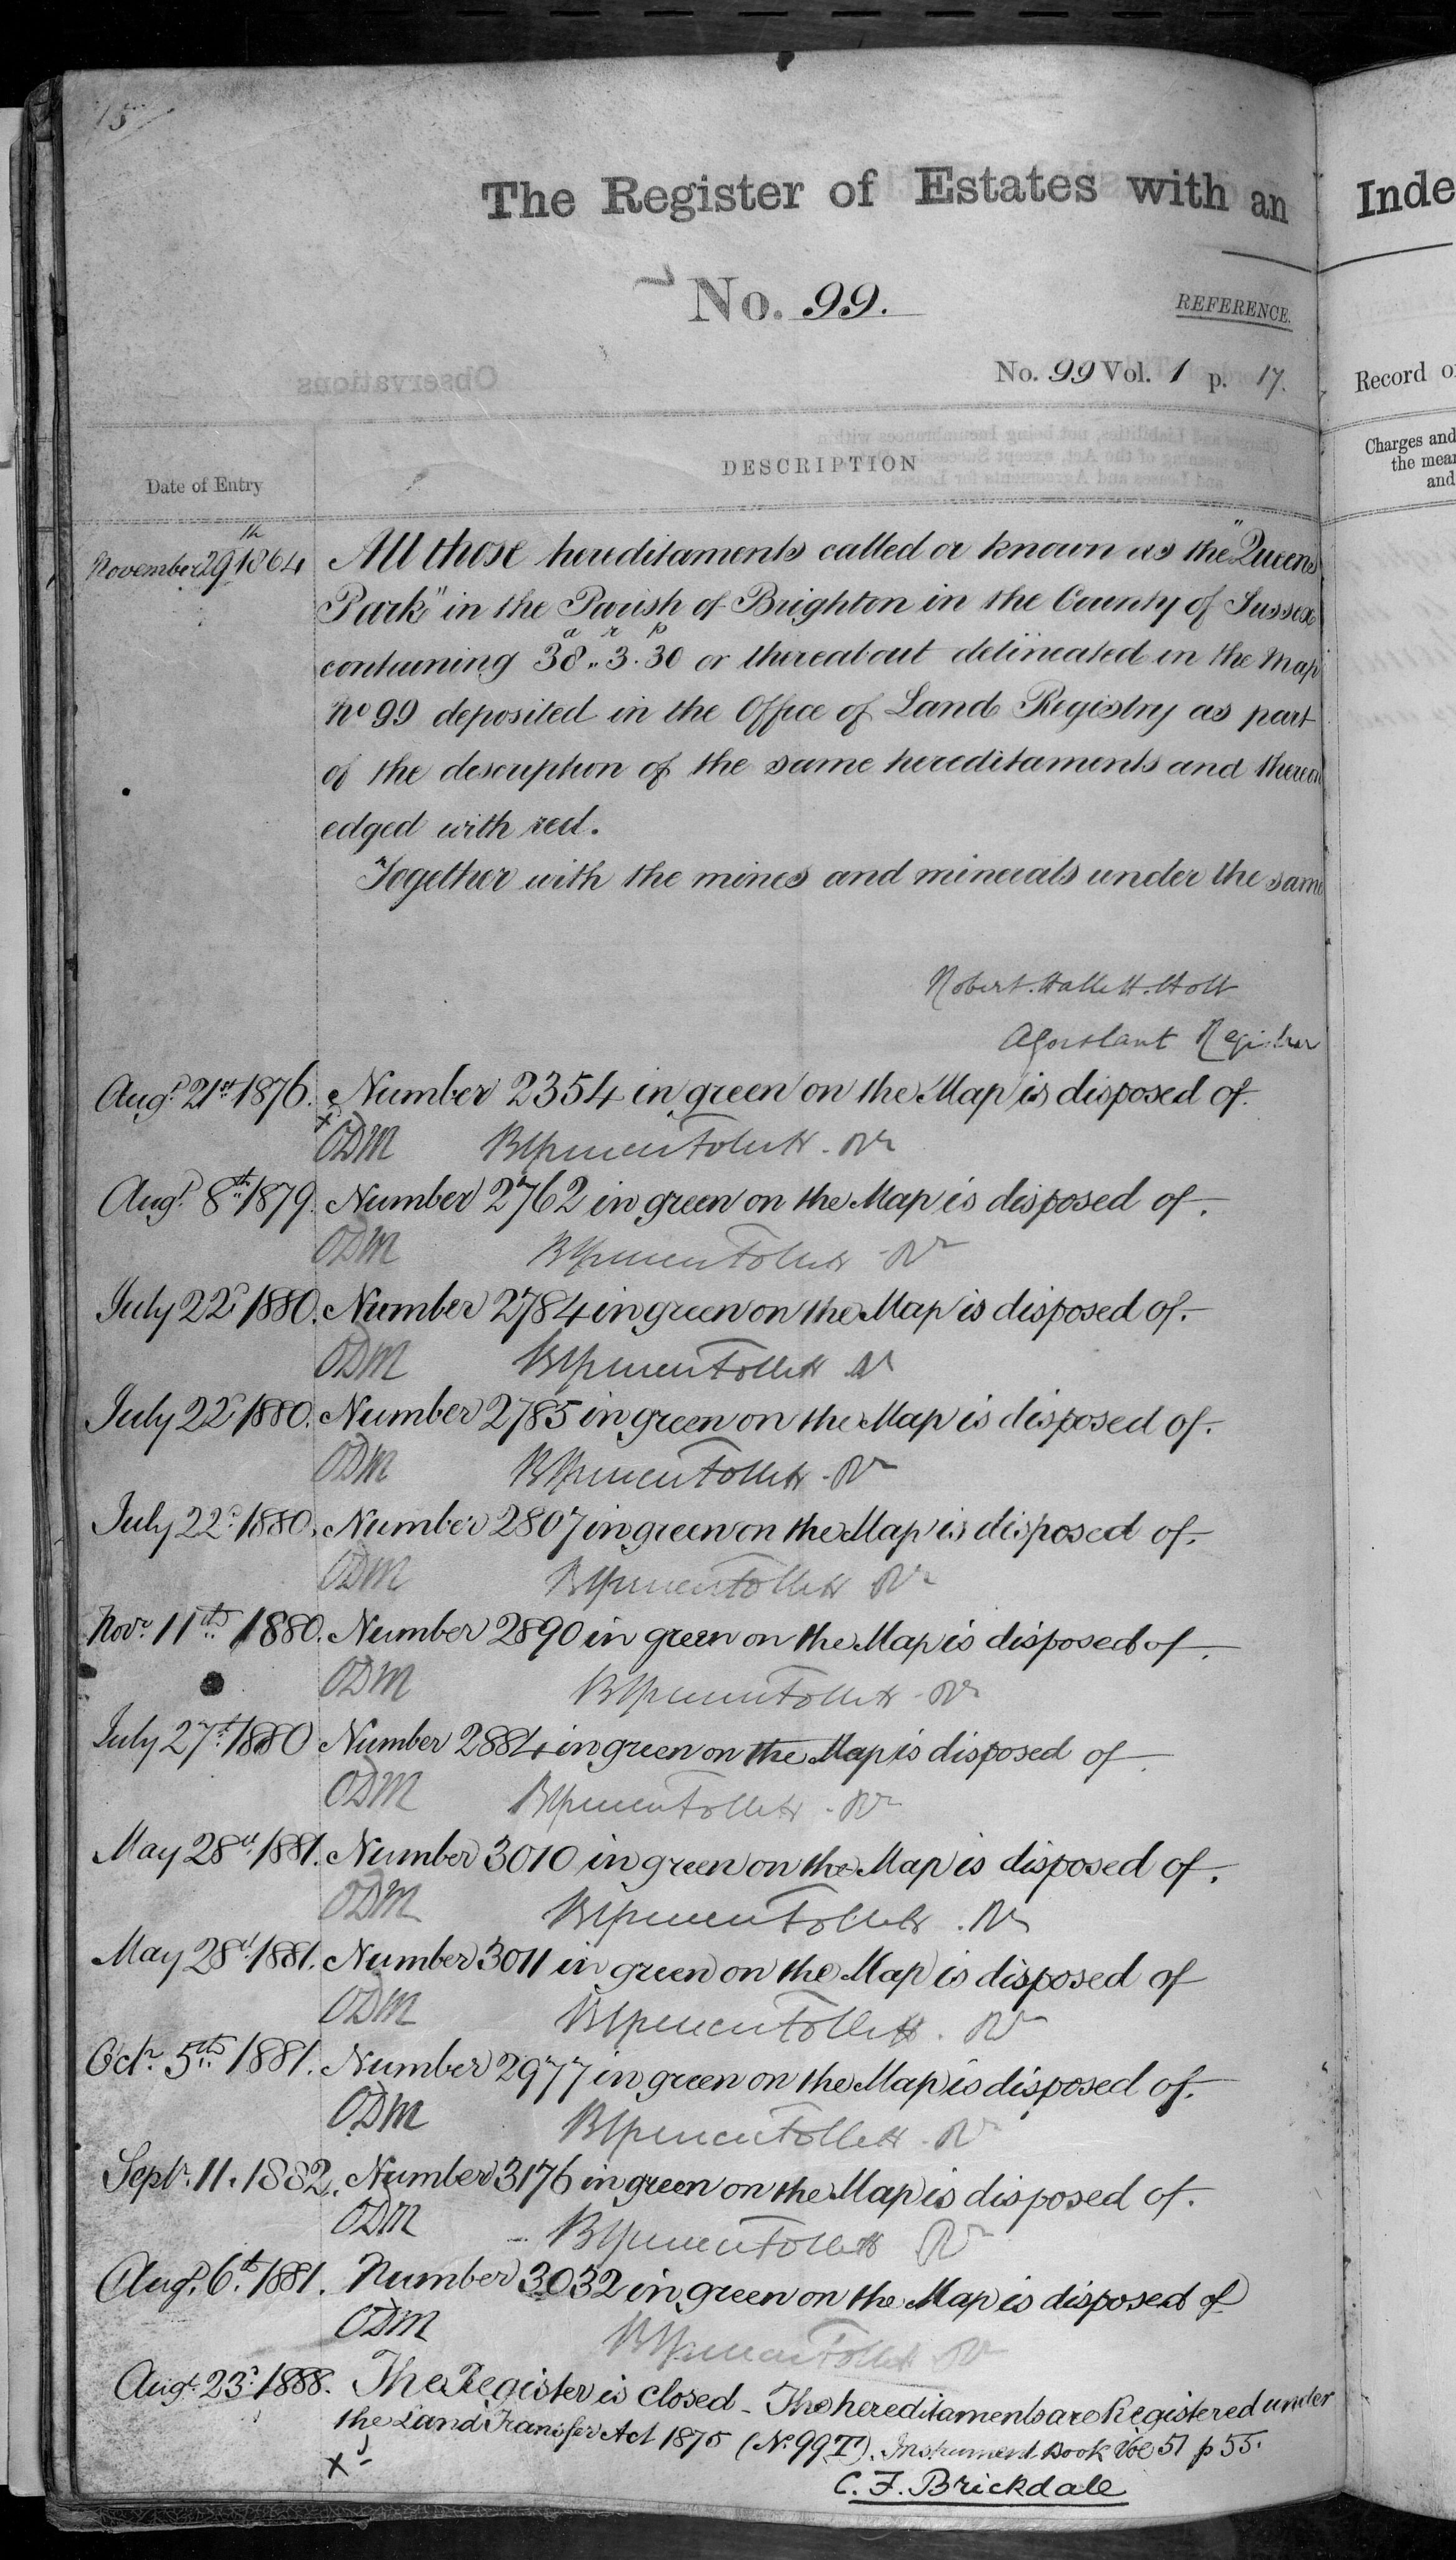 15
The Register of Estates with an
Inde
No. 99.
REFERENCE.
No. 99 Vol. 1 p. 17.
Record o
Observations
Charges and
the mean
and
DESCRIPTION
Date of Entry
November 29th 1864
All those hereditaments called or known as the "Queens
Park" in the Parish of Brighton in the County of Sussex
containing 38a.. 3r. 30p or thereabout delineated in the Map
No 99 deposited in the Office of Land Registry as part
of the description of the same hereditaments and thereon
edged with red.
Together with the mines and minerals under the same
Robert Hallett Holt
Assistant Registrar
Augt 21st 1876. Number 2354 in green on the Map is disposed of.
ODM Follett Rr
Augt 8th 1879. Number 2762 in green on the Map is disposed of.
ODM Follett Rr
July 22d 1880. Number 2784 in green on the Map is disposed of.
ODM Follett Rr
July 22d 1880. Number 2785 in green on the Map is disposed of.
ODM Follett Rr
July 22d 1880. Number 2807 in green on the Map is disposed of.
ODM Follett Rr
Novr 11th 1880. Number 2890 in green on the Map is disposed of.
ODM Follett Rr
July 27th 1880 Number 2884 in green on the Map is disposed of.
ODM Follett Rr
May 28th 1881. Number 3010 in green on the Map is disposed of.
ODM Follett Rr
May 28th 1881. Number 3011 in green on the Map is disposed of
ODM Follett Rr
Octr 5th 1881. Number 2977 in green on the Map is disposed of.
ODM Follett Rr
Septr 11. 1882. Number 3176 in green on the Map is disposed of.
ODM Follett Rr
Augt 6th 1881. Number 3032 in green on the Map is disposed of
ODM Follett Rr
Augt 23d 1888. The Register is closed - The hereditaments are Registered under
the Land Transfer Act 1875 (No 99T). Instrument Book Vol 51 p 55.
X
C. F. Brickdale